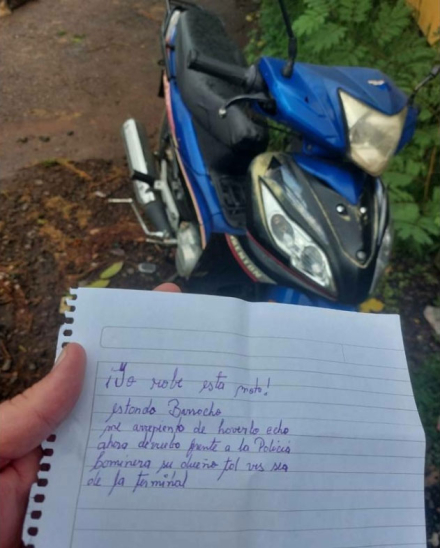 ¡Yo robe esta moto!
estando Borracho
me arrepiento de haverlo echo
ahora debuelbo frente a la Policia
Caminera su dueño tal ves sea
de la terminal